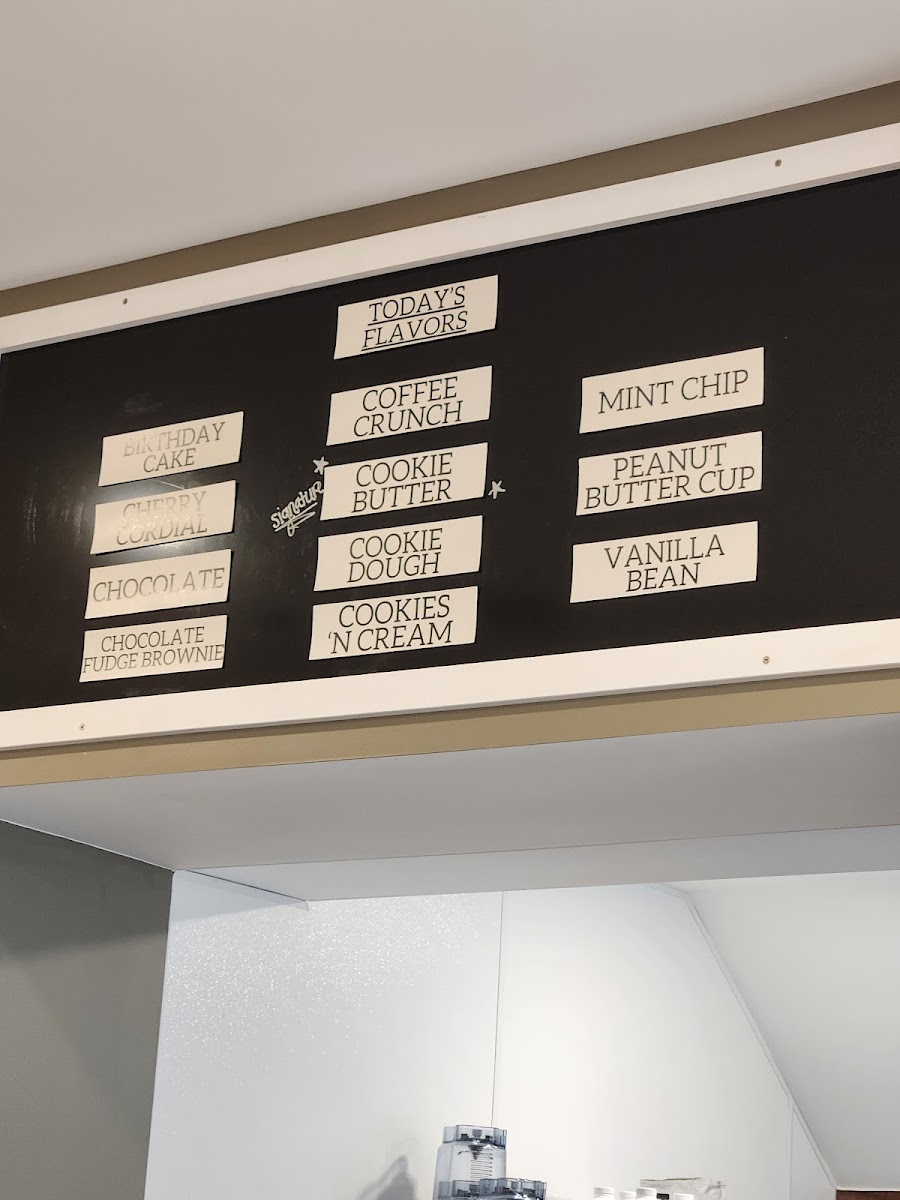 TODAY'S
FLAVORS
BIRTHDAY
CAKE
CHERRY
CORDIAL
CHOCOLATE
CHOCOLATE
FUDGE BROWNIE
COFFEE
CRUNCH
signatur
COOKIE
BUTTER
COOKIE
DOUGH
COOKIES
'N CREAM
MINT CHIP
PEANUT
BUTTER CUP
VANILLA
BEAN